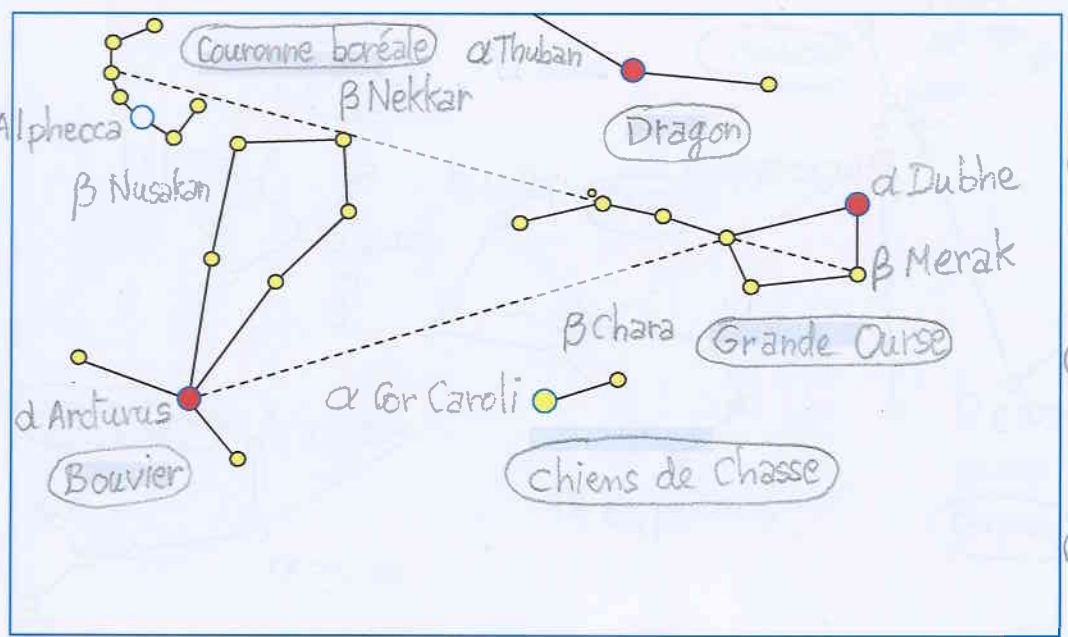 Couronne boréale
α Thuban
β Nekkar
Alphecca
Dragon
β Nusakan
α Dubhe
β Merak
β Chara
Grande Ourse
α Cor Caroli
α Arcturus
Bouvier
Chiens de Chasse